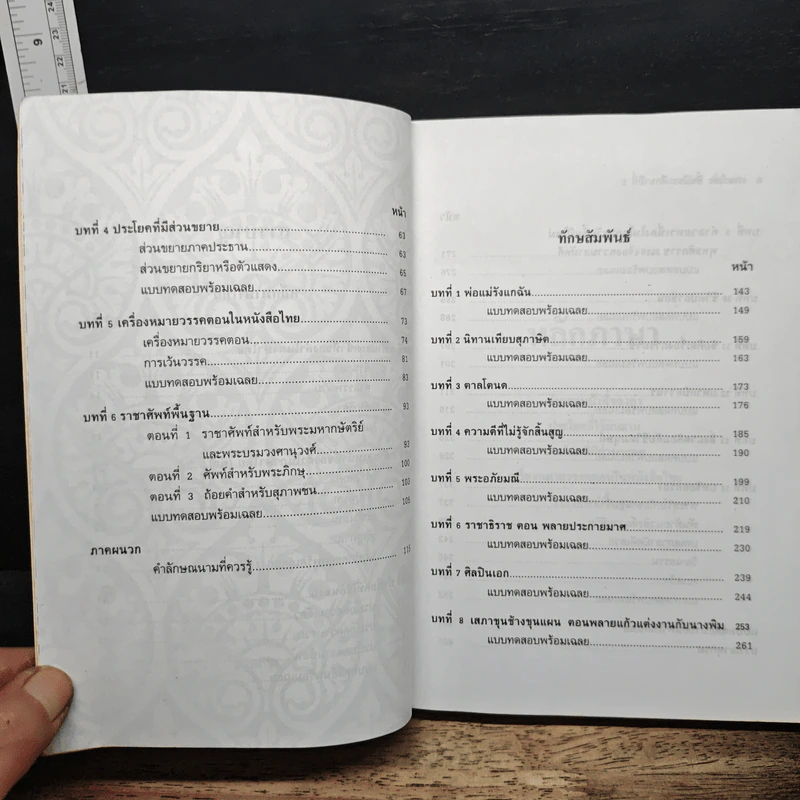 หน้า
บทที่ 4 ประโยคที่มีส่วนขยาย 63
ส่วนขยายภาคประธาน 63
ส่วนขยายกริยาหรือตัวแสดง 65
แบบทดสอบพร้อมเฉลย 67
บทที่ 5 เครื่องหมายวรรคตอนในหนังสือไทย 73
เครื่องหมายวรรคตอน 74
การเว้นวรรค 81
แบบทดสอบพร้อมเฉลย 83
บทที่ 6 ราชาศัพท์พื้นฐาน 93
ตอนที่ 1 ราชาศัพท์สำหรับพระมหากษัตริย์
และพระบรมวงศานุวงศ์ 93
ตอนที่ 2 ศัพท์สำหรับพระภิกษุ 100
ตอนที่ 3 ถ้อยคำสำหรับสุภาพชน 103
แบบทดสอบพร้อมเฉลย 105
ภาคผนวก
คำลักษณนามที่ควรรู้ 115
ทักษสัมพันธ์
หน้า
บทที่ 1 พ่อแม่รังแกฉัน 143
แบบทดสอบพร้อมเฉลย 149
บทที่ 2 นิทานเทียบสุภาษิต 159
แบบทดสอบพร้อมเฉลย 163
บทที่ 3 ตาลโตนด 173
แบบทดสอบพร้อมเฉลย 176
บทที่ 4 ความดีที่ไม่รู้จักสิ้นสูญ 185
แบบทดสอบพร้อมเฉลย 190
บทที่ 5 พระอภัยมณี 199
แบบทดสอบพร้อมเฉลย 210
บทที่ 6 ราชาธิราช ตอน พลายประกายมาศ 219
แบบทดสอบพร้อมเฉลย 230
บทที่ 7 ศิลปินเอก 239
แบบทดสอบพร้อมเฉลย 244
บทที่ 8 เสภาขุนช้างขุนแผน ตอนพลายแก้วแต่งงานกับนางพิม 253
แบบทดสอบพร้อมเฉลย 261
9
24
23
22
21